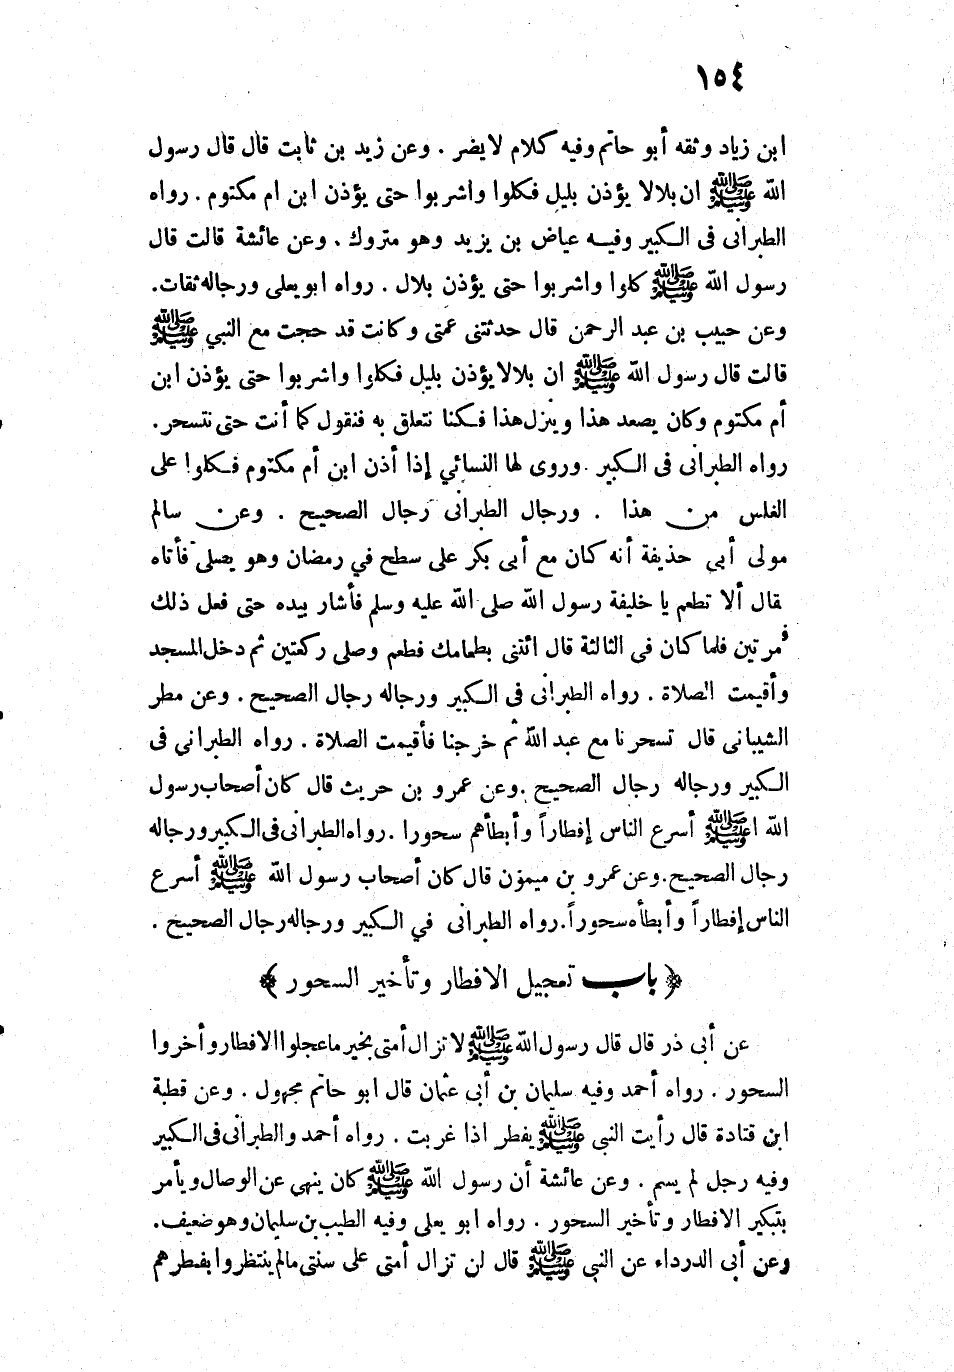 ١٥٤
ابن زياد وثقه أبو حاتم وفيه كلام لايضر . وعن زيد بن ثابت قال قال رسول
الله ﷺ ان بلالا يؤذن بليل فكلوا واشربوا حتى يؤذن ابن ام مكتوم . رواه
الطبرانى فى الكبير وفيه عياض بن يزيد وهو متروك . وعن عائشة قالت قال
رسول الله ﷺ كلوا واشربوا حتى يؤذن بلال . رواه ابو يعلى ورجاله ثقات .
وعن حبيب بن عبد الرحمن قال حدثتنى عمتى وكانت قد حجت مع النبي ﷺ
قالت قال رسول الله ﷺ ان بلالا يؤذن بليل فكلوا واشربوا حتى يؤذن ابن
أم مكتوم وكان يصعد هذا وينزل هذا فكنا نتعلق به فنقول كما أنت حتى نتسحر .
رواه الطبرانى فى الكبير . وروى لها النسائي إذا أذن ابن أم مكتوم فكلوا على
الغلس من هذا . ورجال الطبرانى رجال الصحيح . وعن سالم
مولى أبى حذيفة أنه كان مع أبى بكر على سطح في رمضان وهو يصلى فأتاه
فقال ألا تطعم يا خليفة رسول الله صلى الله عليه وسلم فأشار بيده حتى فعل ذلك
مرتين فلما كان فى الثالثة قال ائتنى بطعامك فطعم وصلى ركعتين ثم دخل المسجد
وأقيمت الصلاة . رواه الطبرانى فى الكبير ورجاله رجال الصحيح . وعن مطر
الشيبانى قال تسحرنا مع عبد الله ثم خرجنا فأقيمت الصلاة . رواه الطبرانى فى
الكبير ورجاله رجال الصحيح . وعن عمرو بن حريث قال كان أصحاب رسول
الله ﷺ أسرع الناس إفطاراً وأبطأهم سحورا . رواه الطبرانى فى الكبير ورجاله
رجال الصحيح . وعن عمرو بن ميمون قال كان أصحاب رسول الله ﷺ أسرع
الناس إفطاراً وأبطأه سحوراً . رواه الطبرانى في الكبير ورجاله رجال الصحيح .
﴿ باب تعجيل الافطار وتأخير السحور ﴾
عن أبى ذر قال قال رسول الله ﷺ لا تزال أمتى بخير ما عجلوا الافطار وأخروا
السحور . رواه أحمد وفيه سليمان بن أبي عثمان قال ابو حاتم مجهول . وعن قطبة
ابن قتادة قال رأيت النبى ﷺ يفطر اذا غربت . رواه أحمد والطبرانى فى الكبير
وفيه رجل لم يسم . وعن عائشة أن رسول الله ﷺ كان ينهى عن الوصال ويأمر
بتبكير الافطار وتأخير السحور . رواه ابو يعلى وفيه الطيب بن سليمان وهو ضعيف .
وعن أبى الدرداء عن النبى ﷺ قال لن تزال أمتى على سنتى مالم ينتظروا بفطرهم